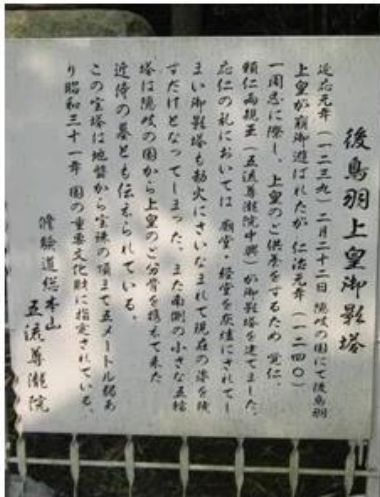 後鳥羽上皇御影塔
延応元年(一二三九)二月二十二日 隠岐の国にて後鳥羽
上皇が崩御遊ばれたが 仁治元年(一二四〇)
一周忌に際し、上皇のご供養をするため 覚仁、
頼仁両親王(五流尊瀧院中興)が御影塔を建てました。
応仁の乱においては 廟堂・経堂を灰燼にされてし
まい御影塔も劫火にさいなまれて現在の姿を残
すだけとなってしまった。また南側の小さな五輪
塔は隠岐の国から上皇のご分骨を携えて来た
近侍の墓とも伝えられている。
この宝塔は地盤から宝珠の頂まで五メートル弱あ
り昭和三十一年 国の重要文化財に指定されている。
修験道総本山
五流尊瀧院